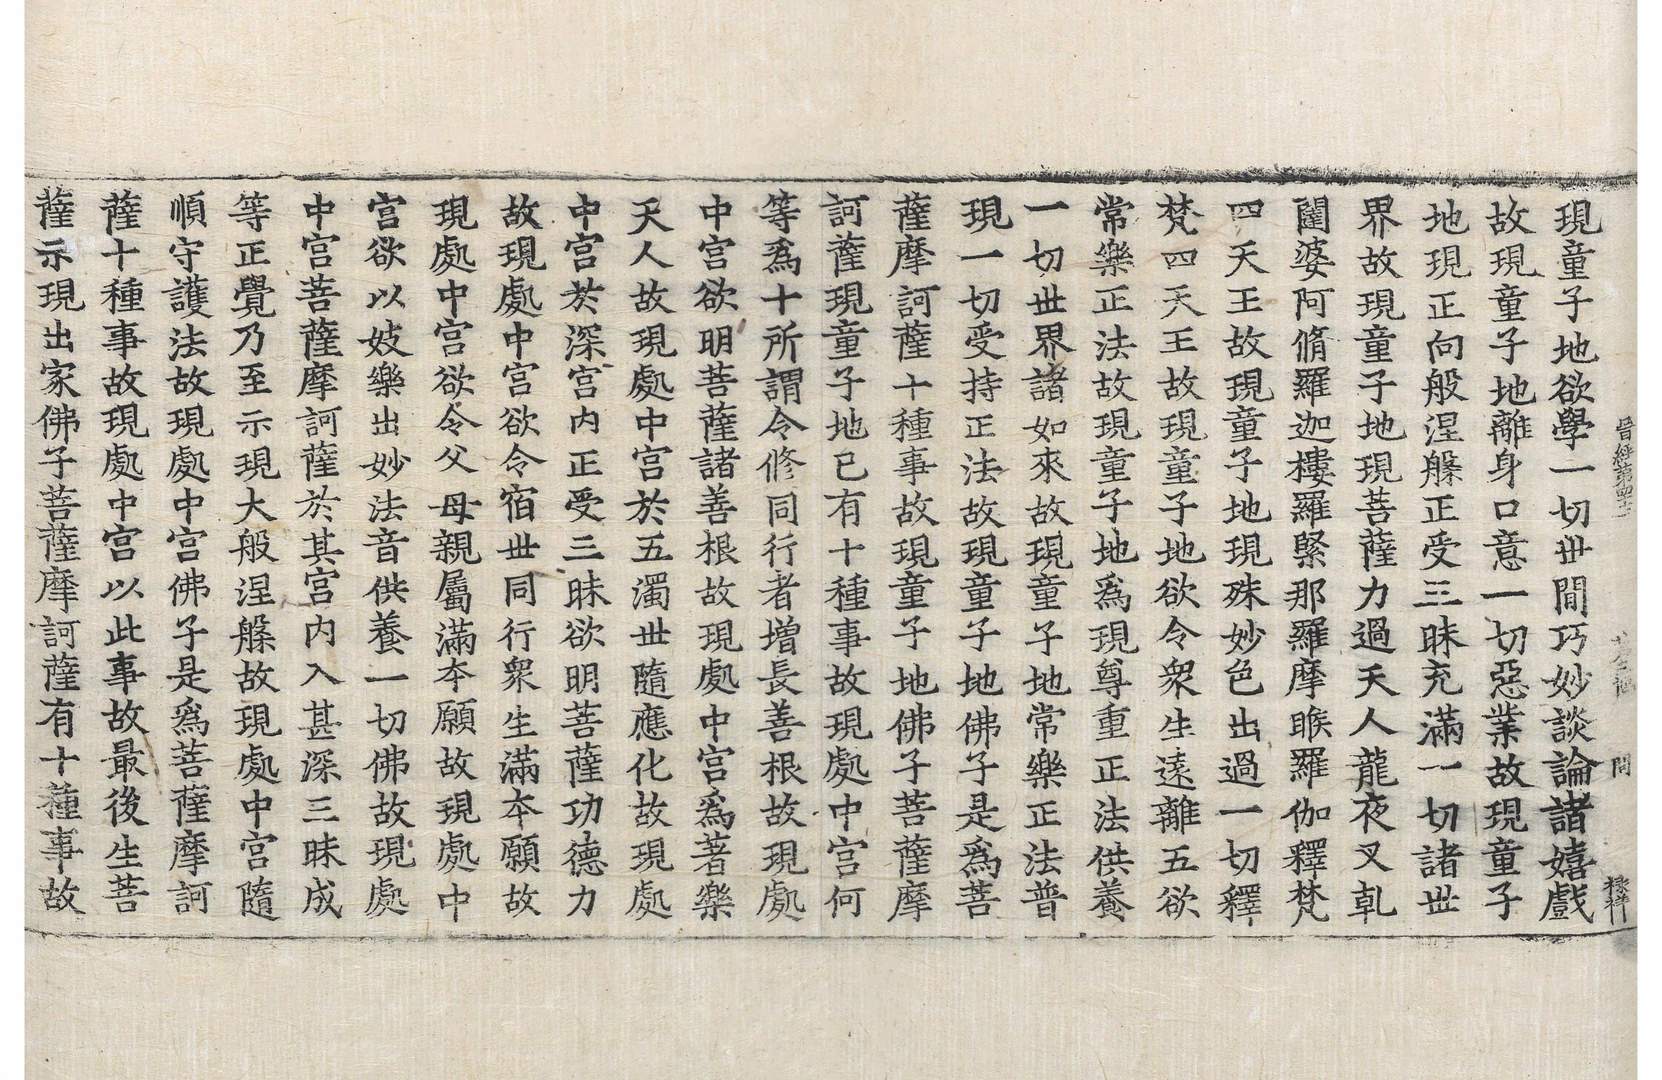 現童子地欲學一切世閒巧妙談論諸嬉戲
故現童子地離身口意一切惡業故現童子
地現正向般涅槃正受三昧充滿一切諸世
界故現童子地現菩薩力過天人龍夜叉乹
闥婆阿脩羅迦樓羅緊那羅摩睺羅伽釋梵
四天王故現童子地現殊妙色出過一切釋
梵四天王故現童子地欲令衆生遠離五欲
常樂正法故現童子地爲現尊重正法供養
一切世界諸如來故現童子地常樂正法普
現一切受持正法故現童子地佛子是爲菩
薩摩訶薩十種事故現童子地佛子菩薩摩
訶薩現童子地已有十種事故現處中宮何
等爲十所謂令修同行者增長善根故現處
中宮欲明菩薩諸善根故現處中宮爲著樂
天人故現處中宮於五濁世隨應化故現處
中宮於深宮內正受三昧欲明菩薩功德力
故現處中宮欲令宿世同行衆生滿本願故
現處中宮欲令父母親屬滿本願故現處中
宮欲以妓樂出妙法音供養一切佛故現處
中宮菩薩摩訶薩於其宮內入甚深三昧成
等正覺乃至示現大般涅槃故現處中宮隨
順守護法故現處中宮佛子是爲菩薩摩訶
薩十種事故現處中宮以此事故最後生菩
薩示現出家佛子菩薩摩訶薩有十種事故